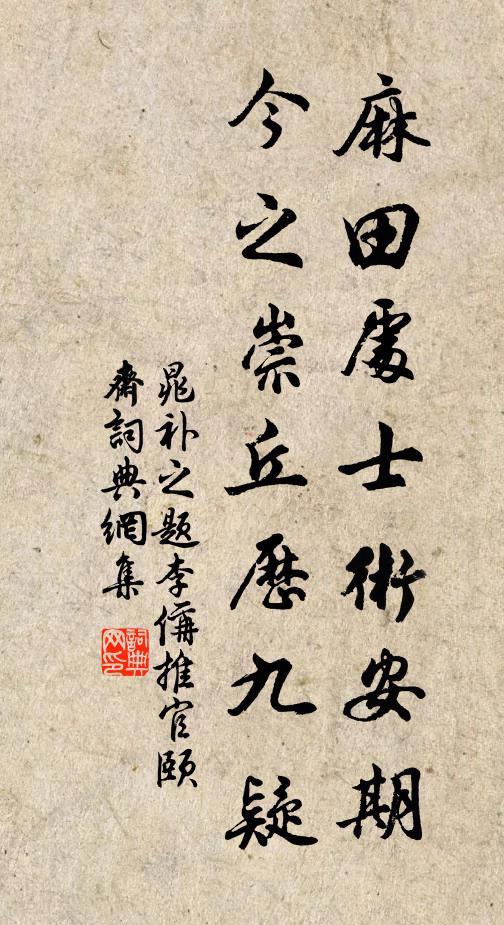 麻田處士術安期
今之崇丘歷九疑
晁补之题李偁推官颐
齋詞典網集
詞典網印